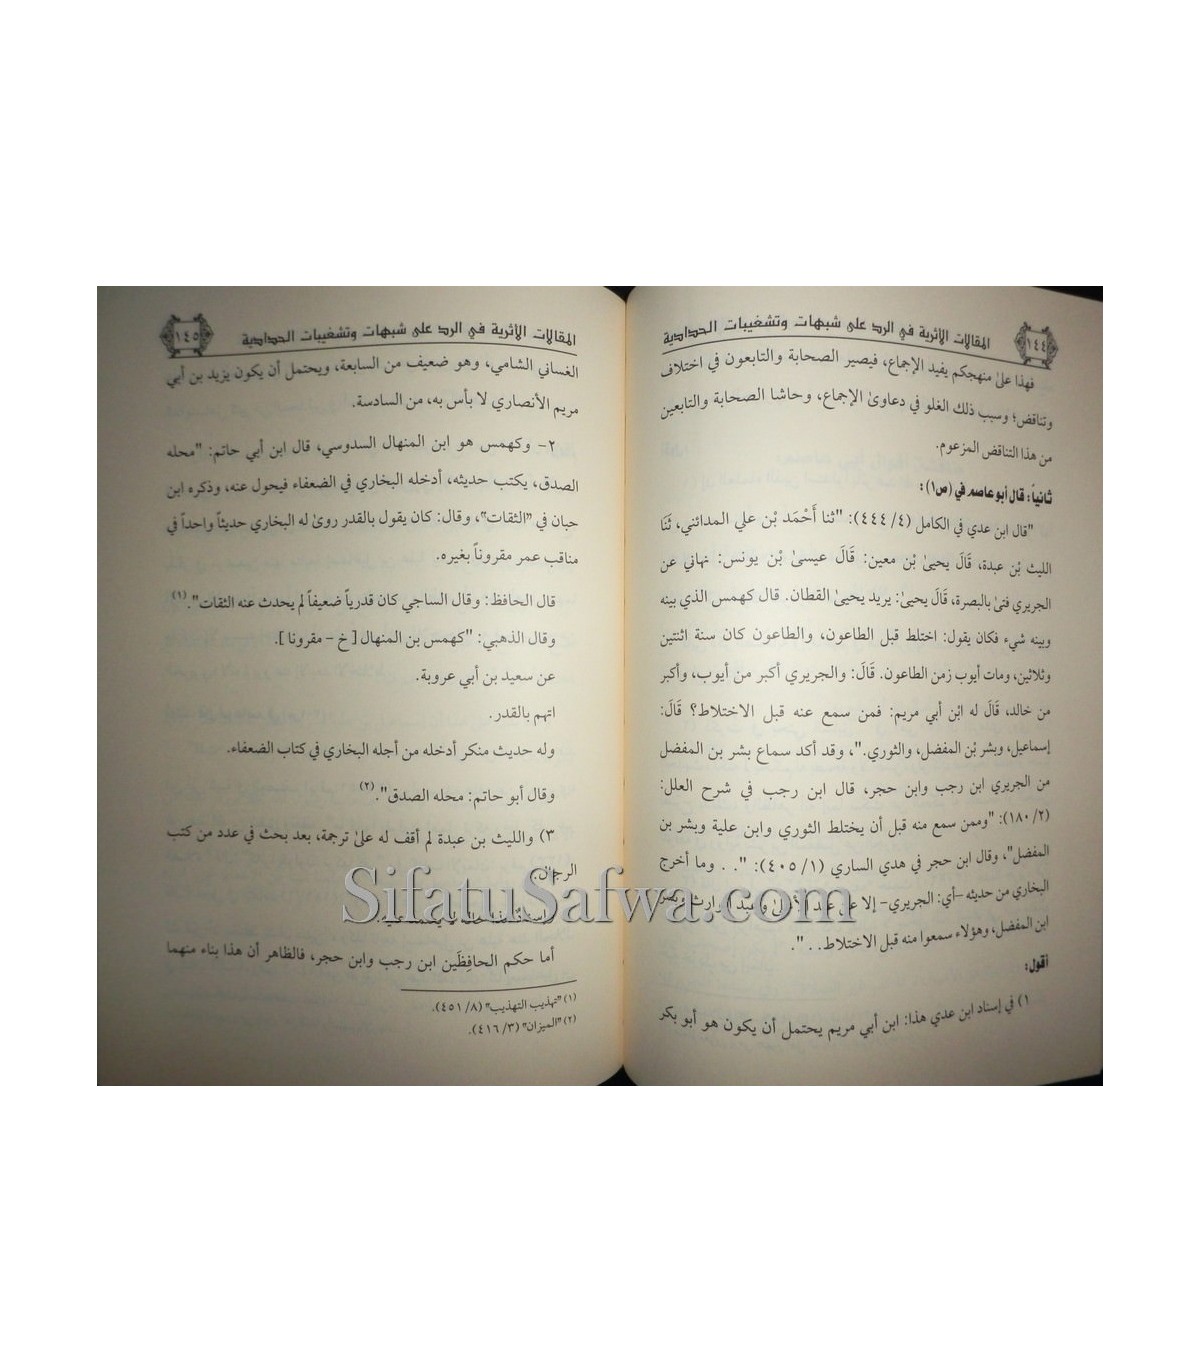 ١٤٤
المقالات الأثرية في الرد على شبهات وتشغيبات الحدادية
فهذا علىٰ منهجكم يفيد الإجماع، فيصير الصحابة والتابعون في اختلاف
وتناقض؛ وسبب ذلك الغلو في دعاوىٰ الإجماع، وحاشا الصحابة والتابعين
من هذا التناقض المزعوم.
ثانياً: قال أبو عاصم في (ص١):
"قال ابن عدي في الكامل (٤/ ٤٤٤): "ثنا أَحْمَد بْن علي المدائني، ثَنَا
الليث بْن عبدة، قَالَ يحيىٰ بْن معين: قَالَ عيسىٰ بْن يونس: نهاني عن
الجريري فتىٰ بالبصرة، قَالَ يحيىٰ: يريد يحيىٰ القطان. قال كهمس الذي بينه
وبينه شيء فكان يقول: اختلط قبل الطاعون، والطاعون كان سنة اثنتين
وثلاثين، ومات أيوب زمن الطاعون. قَالَ: والجريري أكبر من أيوب، وأكبر
من خالد، قَالَ له ابْن أبي مريم: فمن سمع عنه قبل الاختلاط؟ قَالَ:
إسماعيل، وبشر بْن المفضل، والثوري."، وقد أكد سماع بشر بن المفضل
من الجريري ابن رجب وابن حجر، قال ابن رجب في شرح العلل:
(٢/ ١٨٠): "وممن سمع منه قبل أن يختلط الثوري وابن علية وبشر بن
المفضل"، وقال ابن حجر في هدي الساري (١/ ٤٠٥): ". . وما أخرج
البخاري من حديثه -أي: الجريري- إلا عن عبد الأعلىٰ وعبد الوارث وبشر
ابن المفضل، وهؤلاء سمعوا منه قبل الاختلاط. . ".
أقول:
١) في إسناد ابن عدي هذا: ابن أبي مريم يحتمل أن يكون هو أبو بكر
المقالات الأثرية في الرد على شبهات وتشغيبات الحدادية
١٤٥
الغساني الشامي، وهو ضعيف من السابعة، ويحتمل أن يكون يزيد بن أبي
مريم الأنصاري لا بأس به، من السادسة.
٢- وكهمس هو ابن المنهال السدوسي، قال ابن أبي حاتم: "محله
الصدق، يكتب حديثه، أدخله البخاري في الضعفاء فيحول عنه، وذكره ابن
حبان في "الثقات"، وقال: كان يقول بالقدر روىٰ له البخاري حديثاً واحداً في
مناقب عمر مقروناً بغيره.
قال الحافظ: وقال الساجي كان قدرياً ضعيفاً لم يحدث عنه الثقات".(١)
وقال الذهبي: "كهمس بن المنهال [ خ - مقرونا ].
عن سعيد بن أبي عروبة.
اتهم بالقدر.
وله حديث منكر أدخله من أجله البخاري في كتاب الضعفاء.
وقال أبو حاتم: محله الصدق".(٢)
٣) والليث بن عبدة لم أقف له علىٰ ترجمة، بعد بحث في عدد من كتب
الرجال.
أما حكم الحافِظَين ابن رجب وابن حجر، فالظاهر أن هذا بناء منهما
(١) "تهذيب التهذيب" (٨/ ٤٥١).
(٢) "الميزان" (٣/ ٤١٦).
SifatuSafwa.com